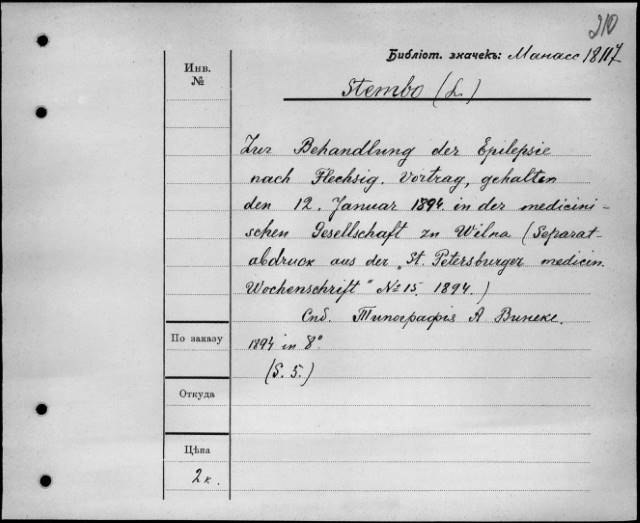 210
Библіот. значекъ: Манасс 18117
Инв.
№
Stembo (L.)
Zur Behandlung der Epilepsie
nach Flechsig. Vortrag, gehalten
den 12. Januar 1894. in der medicini-
schen Gesellschaft zu Wilna (Separat-
abdruck aus der „St. Petersburger medicin.
Wochenschrift" № 15. 1894.)
Спб. Типографія А Винеке.
По заказу
1894 in 8°
(S. 5.)
Откуда
Цѣна
2 к.